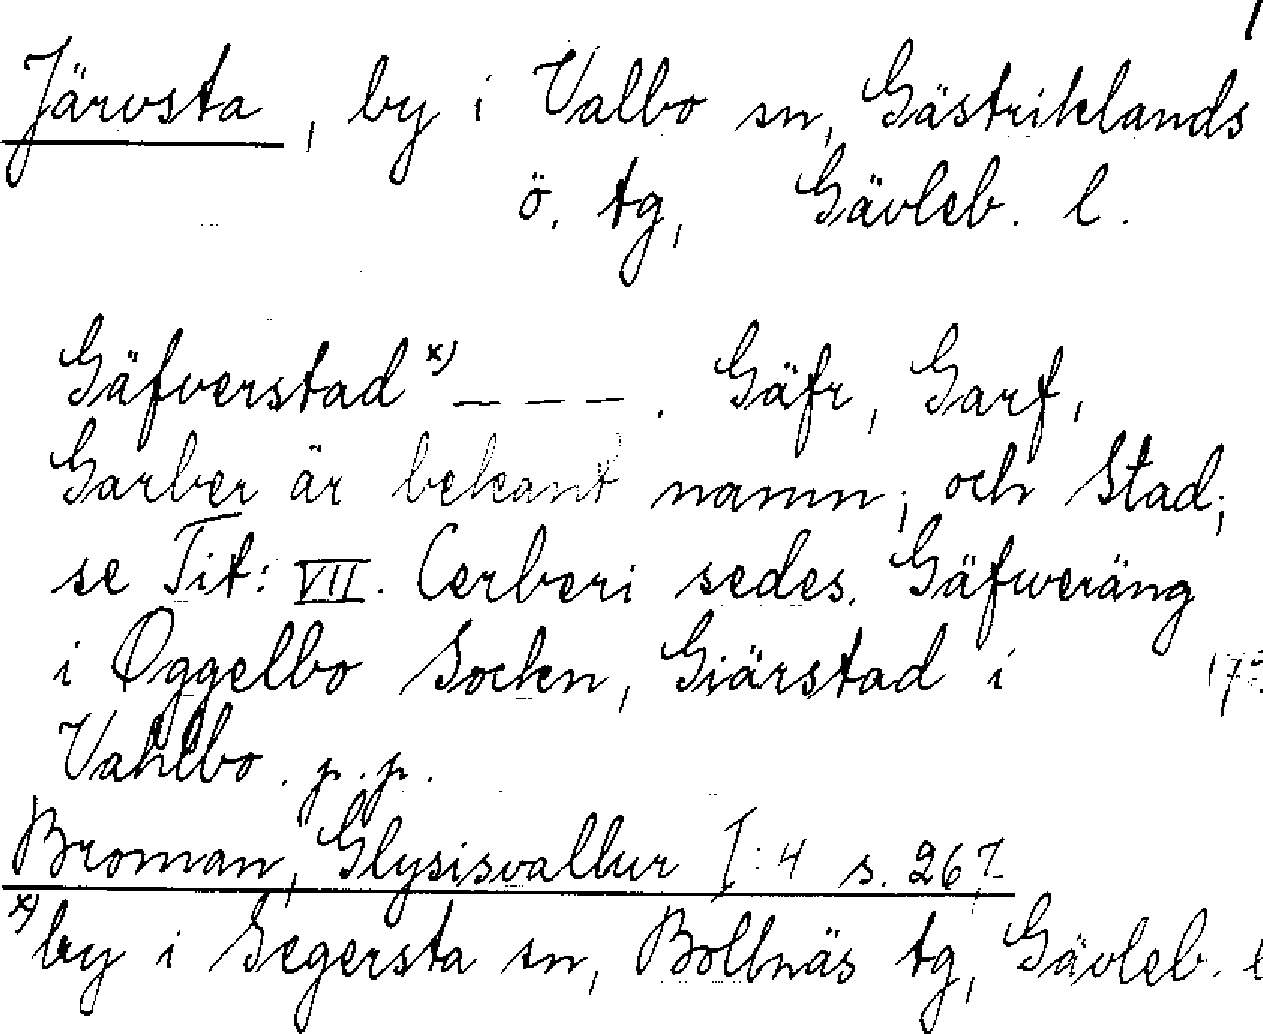 Järvsta, by i Valbo sn, Gästriklands
ö. tg, Gävleb. l.
Gäfverstad x) _ _ _ . Gäfr, Garf,
Garber är bekant namn; och Stad;
se Tit: VII. Cerberi sedes. Gäfweräng
i Oggelbo Sockn, Giärstad i
Vahlbo. p.p.
Broman, Glysisvallur I:4 s. 267
x) by i Segersta sn, Bollnäs tg, Gävleb. l